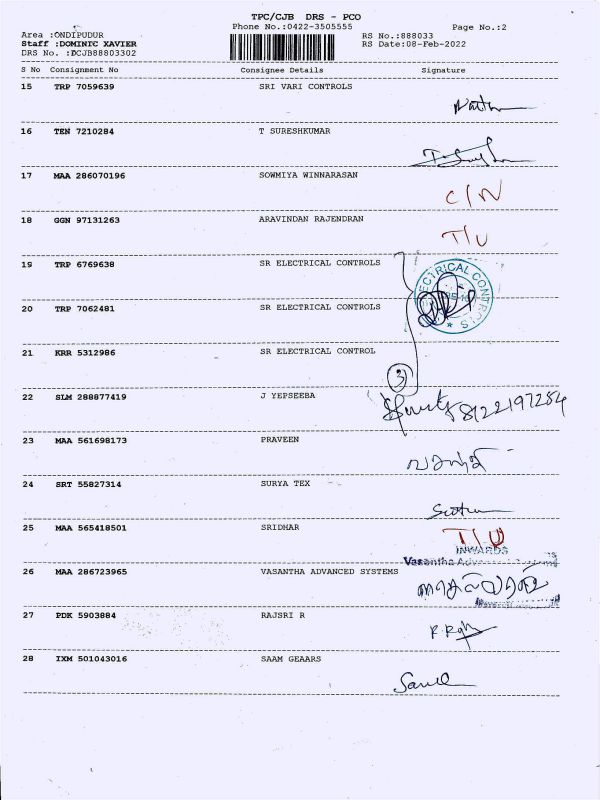 TPC/CJB DRS - PCO
Phone No.:0422-3505555
Page No.:2
Area :ONDIPUDUR
RS No.:888033
Staff :DOMINIC XAVIER
RS Date:08-Feb-2022
DRS No. :DCJB88803302
S No Consignment No Consignee Details Signature
15 TRP 7059639 SRI VARI CONTROLS
16 TEN 7210284 T SURESHKUMAR
17 MAA 286070196 SOWMIYA WINNARASAN
C/N
18 GGN 97131263 ARAVINDAN RAJENDRAN
T/U
19 TRP 6769638 SR ELECTRICAL CONTROLS
ELECTRICAL CONTROLS
20 TRP 7062481 SR ELECTRICAL CONTROLS
21 KRR 5312986 SR ELECTRICAL CONTROL
3
22 SLM 288877419 J YEPSEEBA
8122197284
23 MAA 561698173 PRAVEEN
24 SRT 55827314 SURYA TEX
25 MAA 565418501 SRIDHAR
T/U
INWARDS
Vasantha
26 MAA 286723965 VASANTHA ADVANCED SYSTEMS
27 PDK 5903884 RAJSRI R
28 IXM 501043016 SAAM GEAARS